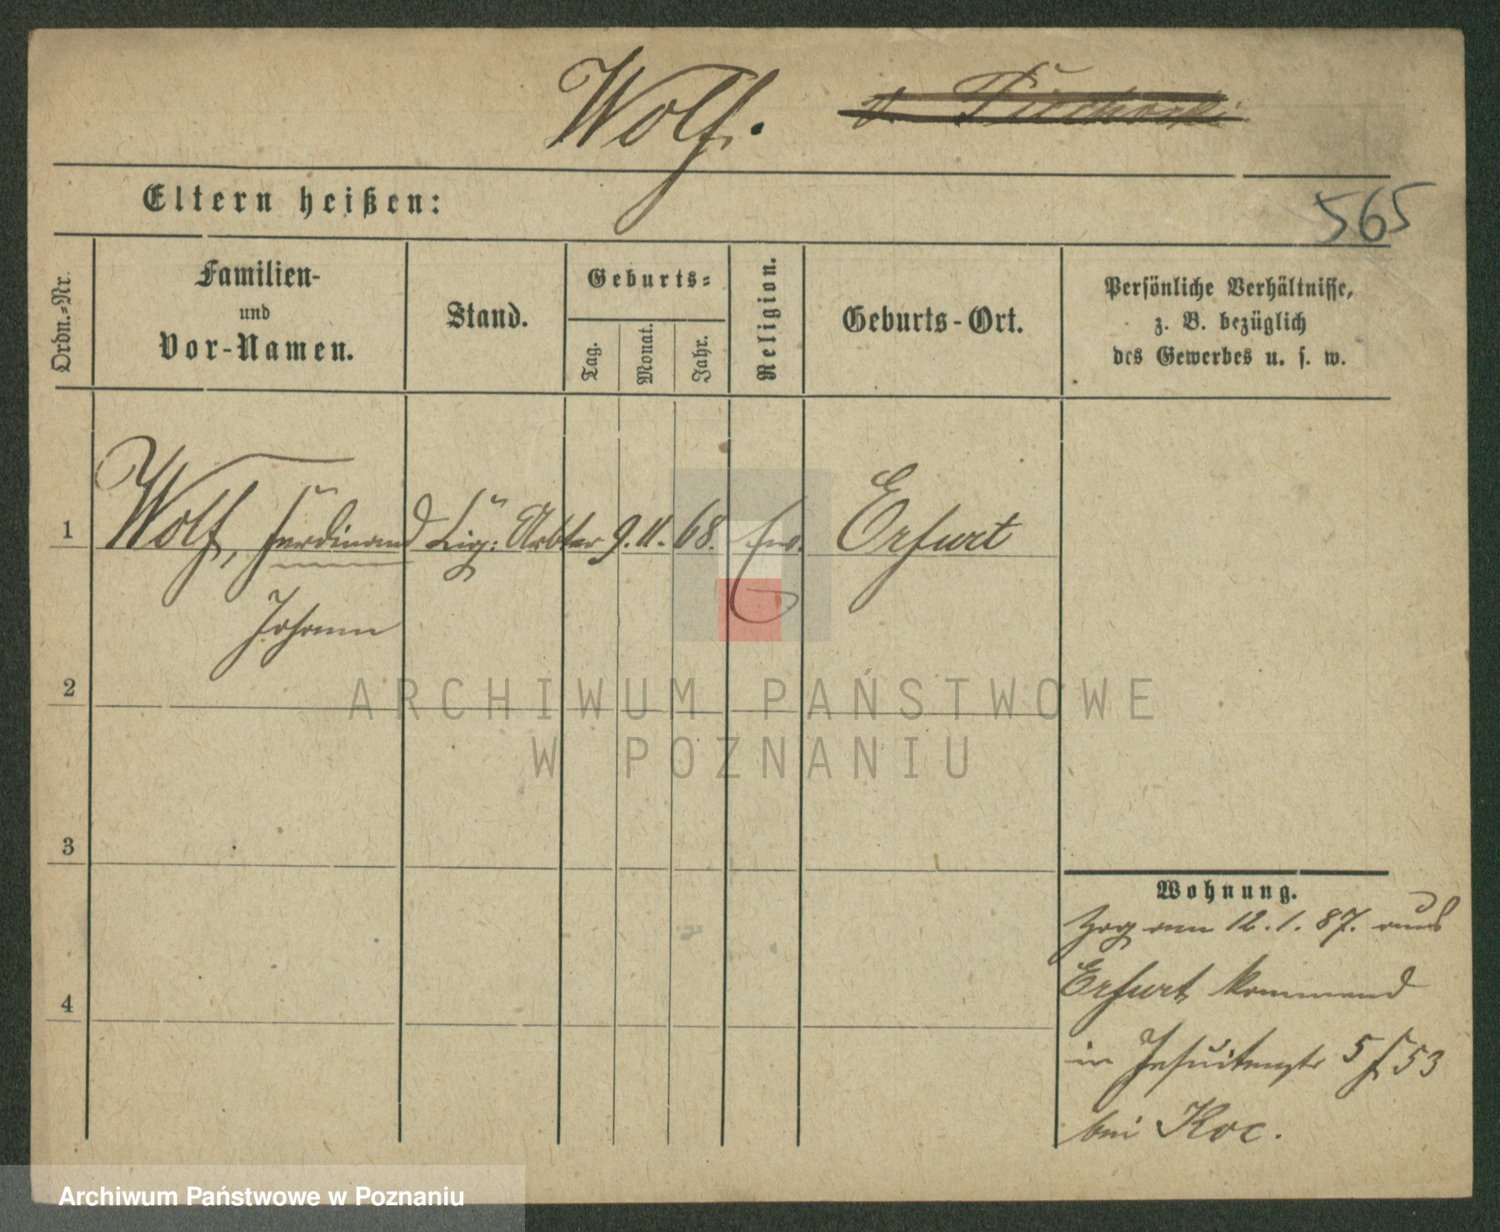 Wolf.
v. Piechocki
565
Eltern heißen:
Ordn.-Nr.
Familien-
und
Vor-Namen.
Stand.
Geburts-
Tag.
Monat.
Jahr.
Religion.
Geburts-Ort.
Persönliche Verhältnisse,
z. B. bezüglich
des Gewerbes u. s. w.
1
Wolf, Ferdinand
Johann
Cig: Arbter
9. 11. 68.
Ev.
Erfurt
2
3
4
ARCHIWUM PAŃSTWOWE
W POZNANIU
Wohnung.
Zog am 12. 1. 87. aus
Erfurt kommend
in Jesuitenstr 5 f 53
bei Koc.
Archiwum Państwowe w Poznaniu